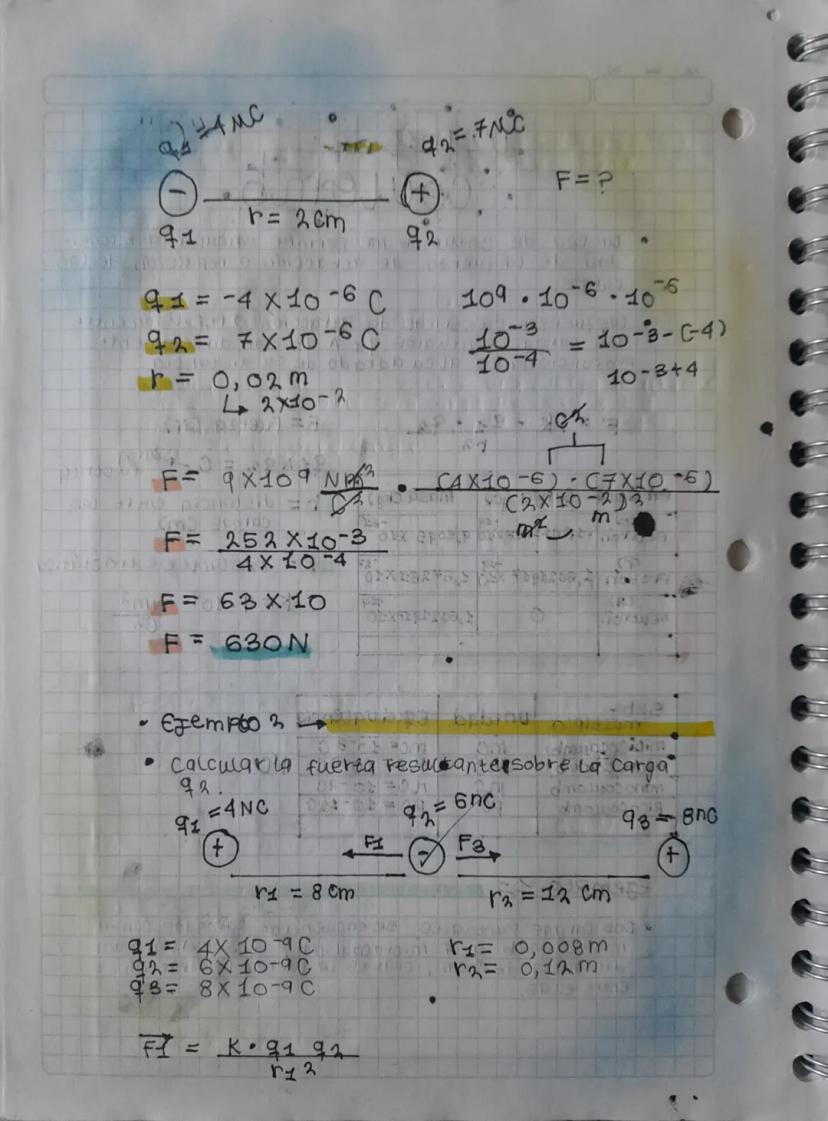 q1 = 4 MC
q2 = 7 MC
F = ?
r = 2 cm
q1
q2
q1 = -4 x 10-6 C
109 • 10-6 • 10-6
q2 = 7 x 10-6 C
10-3 / 10-4 = 10-3-(-4)
r = 0,02 m
10-3+4
↳ 2x10-2
C2
F = 9 x 109 Nm2 / C2 • (4x10-6) • (7x10-6) / (2x10-2)2
m2
m
F = 252 x 10-3 / 4 x 10-4
F = 63 x 10
F = 630 N
• Ejemplo 2 →
• Calcular la fuerza resultante sobre la carga
q2.
q1 = 4NC
q2 = 6nC
q3 = 8nC
F1
F3
r1 = 8 cm
r2 = 12 cm
q1 = 4 x 10-9 C
r1 = 0,008m
q2 = 6 x 10-9 C
r2 = 0,12 m
q3 = 8 x 10-9 C
F1 = K • q1 q2 / r1 2